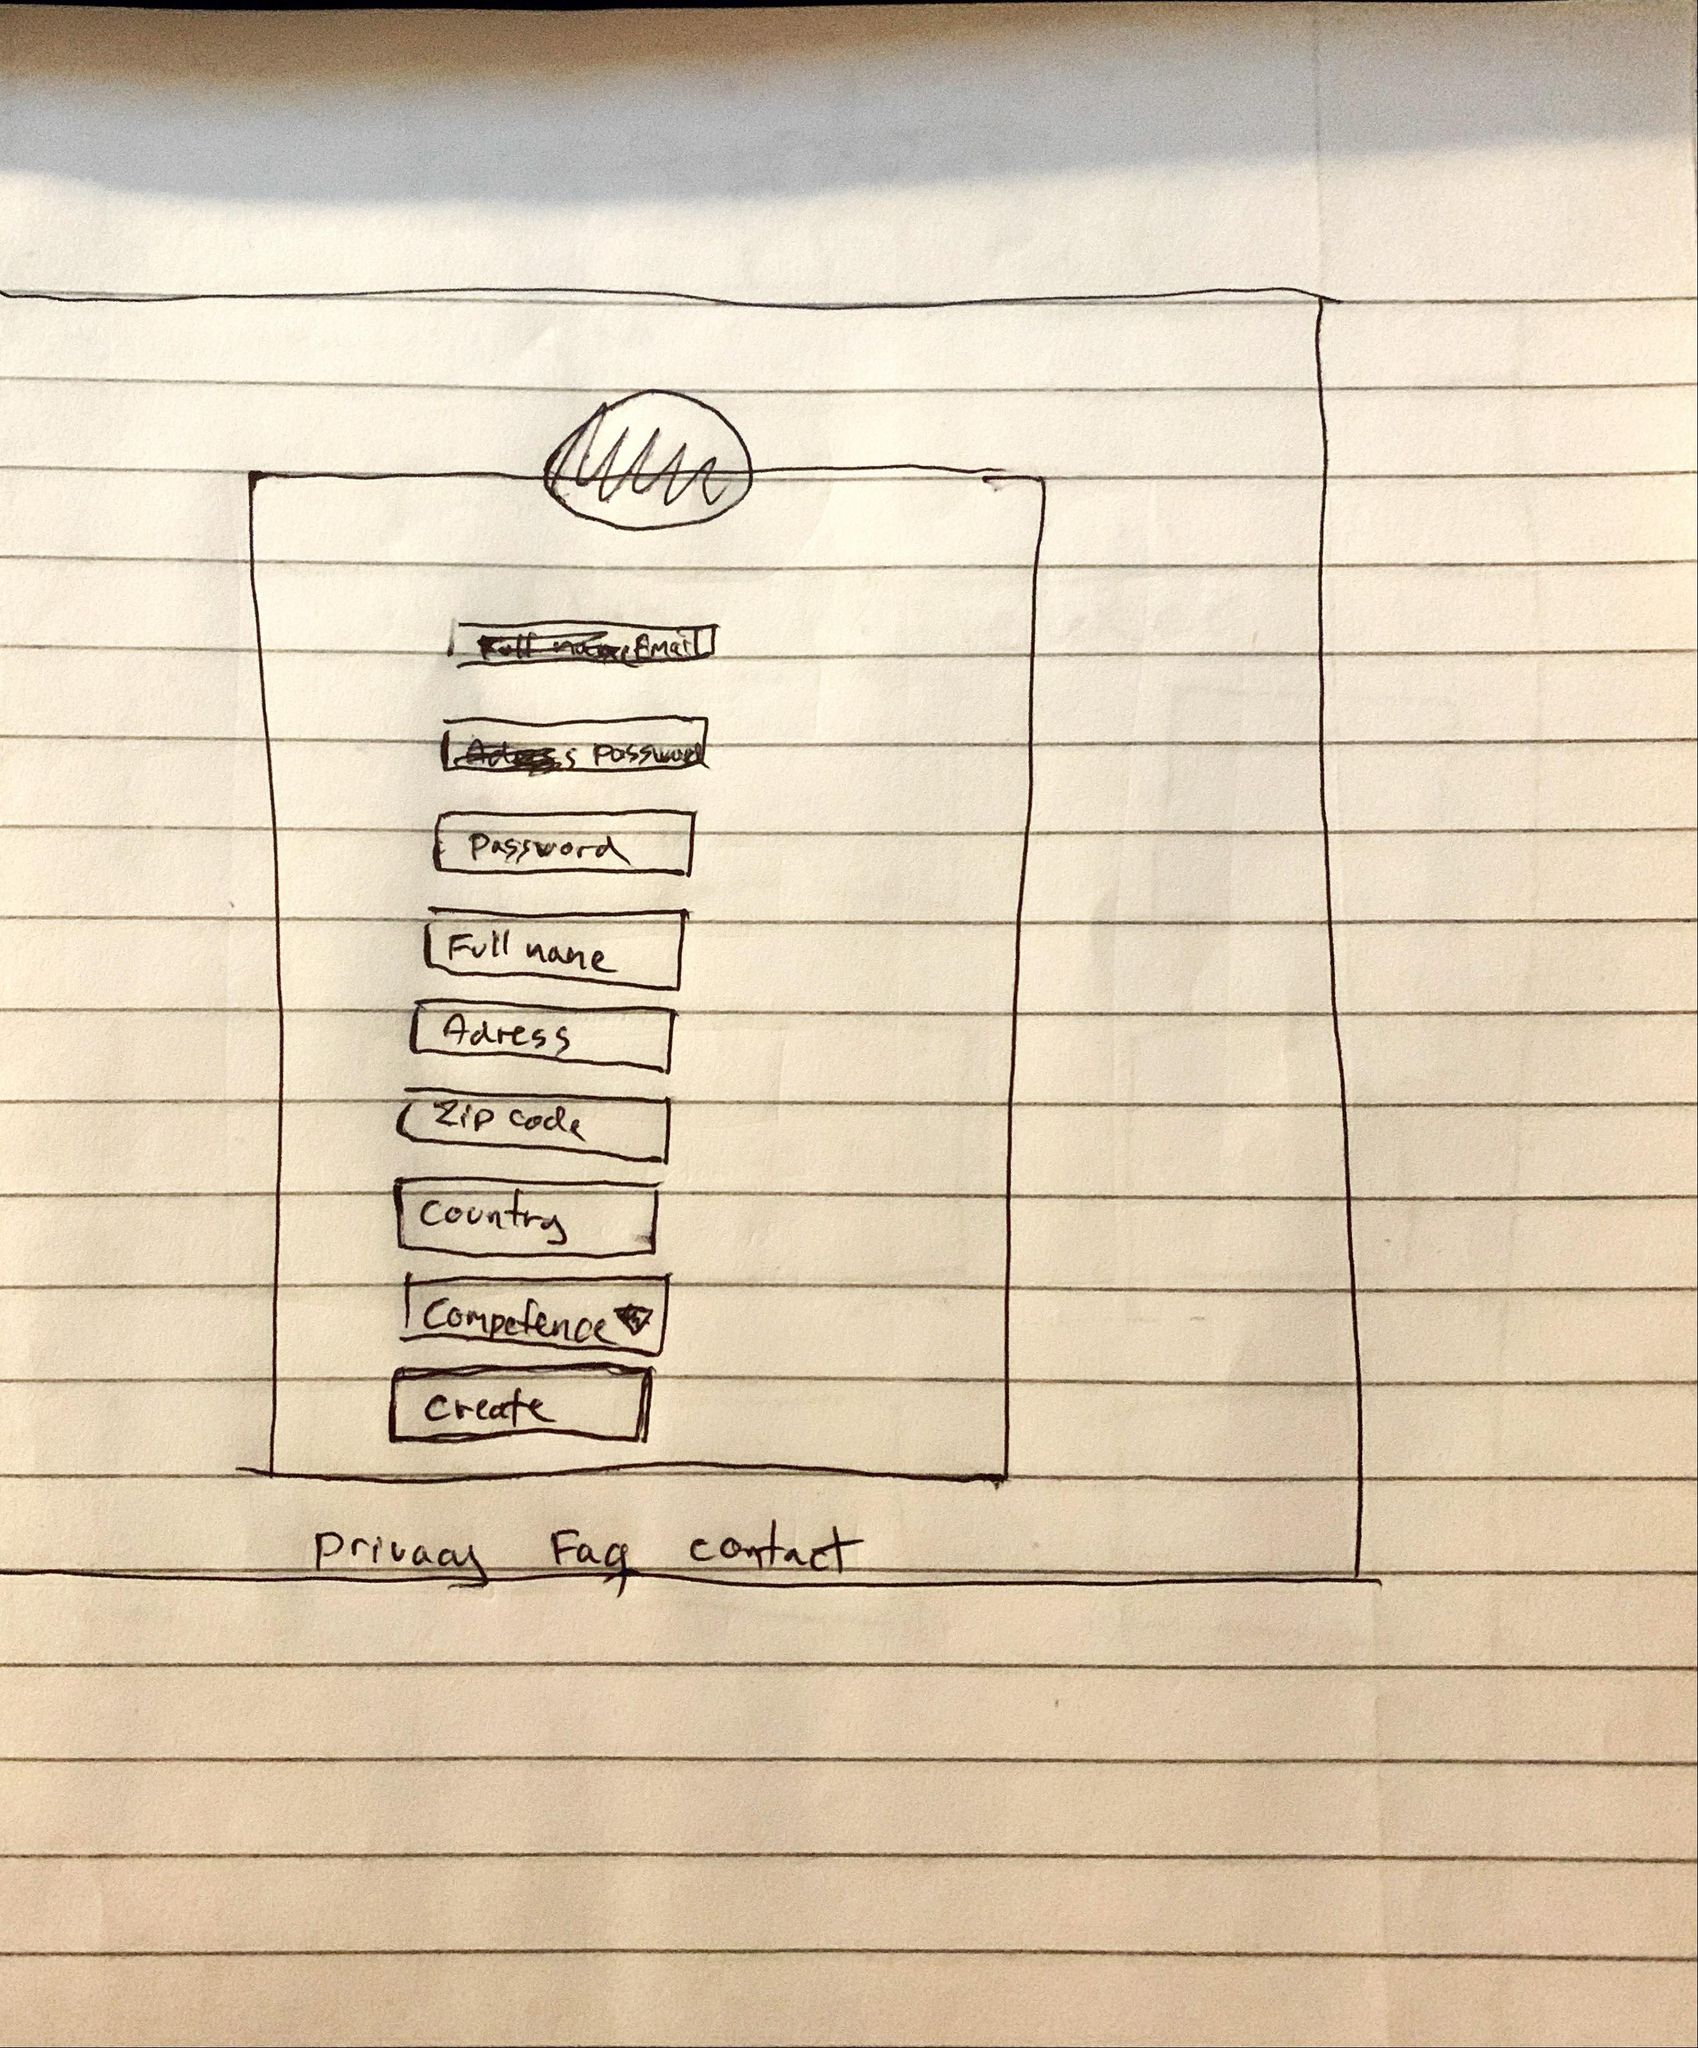 Full name Email
Adress password
Password
Full name
Adress
Zip code
Country
Competence
Create
Privacy Faq contact